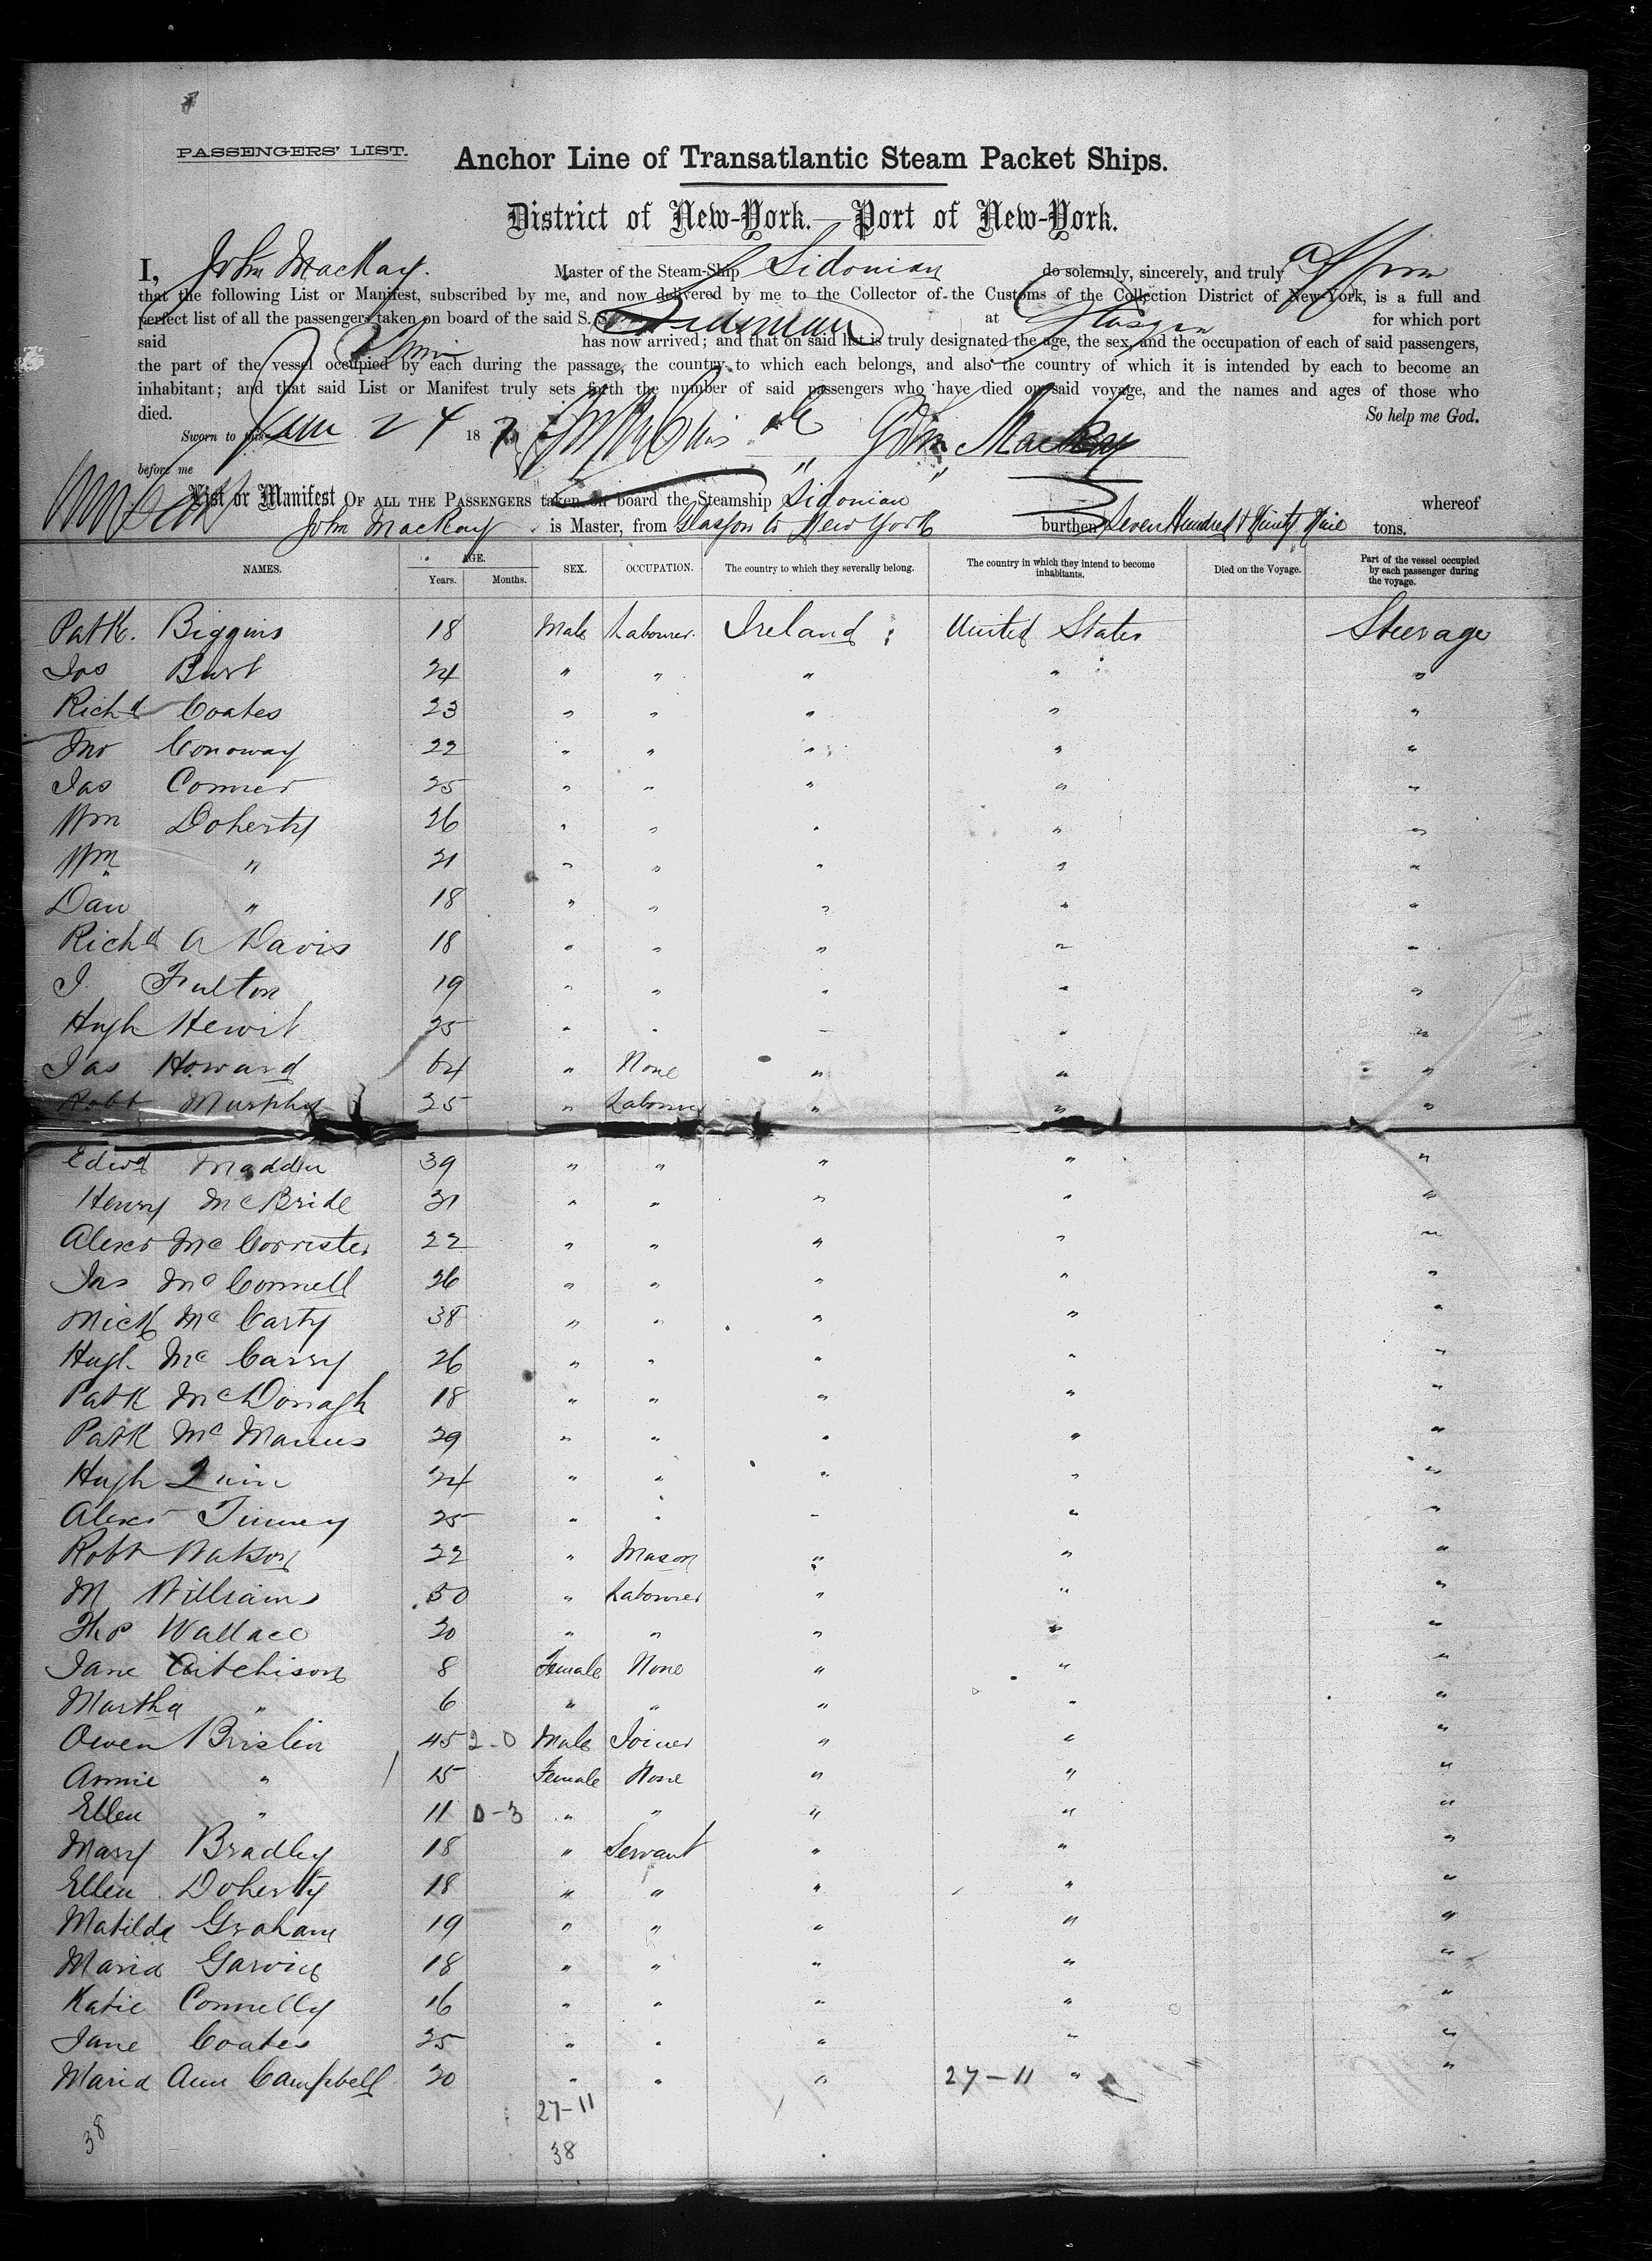 PASSENGERS' LIST.
Anchor Line of Transatlantic Steam Packet Ships.
District of New-York.—Port of New-York.
I, John MacKay. Master of the Steam-Ship Sidonian do solemnly, sincerely, and truly affirm
that the following List or Manifest, subscribed by me, and now delivered by me to the Collector of the Customs of the Collection District of New-York, is a full and
perfect list of all the passengers taken on board of the said S. S. Sidonian at Glasgow for which port
said has now arrived; and that on said list is truly designated the age, the sex, and the occupation of each of said passengers,
the part of the vessel occupied by each during the passage, the country to which each belongs, and also the country of which it is intended by each to become an
inhabitant; and that said List or Manifest truly sets forth the number of said passengers who have died on said voyage, and the names and ages of those who
died. So help me God.
Sworn to this June 24 187 John MacKay
before me
List or Manifest OF ALL THE PASSENGERS taken on board the Steamship Sidonian whereof
John MacKay is Master, from Glasgow to New York burthen Seven Hundred & Ninety Nine tons.
NAMES. AGE. Years. Months. SEX. OCCUPATION. The country to which they severally belong. The country in which they intend to become inhabitants. Died on the Voyage. Part of the vessel occupied by each passenger during the voyage.
Patk. Biggins 18 Male Labourer. Ireland United States Steerage
Jas Burt 24 " " " " "
Richd Coates 23 " " " " "
Jno Conoway 22 " " " " "
Jas Conner 25 " " " " "
Wm Doherty 26 " " " " "
Wm " 21 " " " " "
Dan " 18 " " " " "
Richd A Davis 18 " " " " "
J. Fulton 19 " " " " "
Hugh Hewit 25 " " " " "
Jas Howard 64 " None " " "
Robt Murphy 25 " Labourer " " "
Edwd Madden 39 " " " " "
Henry McBride 31 " " " " "
Alexr McCorrister 22 " " " " "
Jas McConnell 26 " " " " "
Mick McCarty 38 " " " " "
Hugh McCarry 26 " " " " "
Patk McDonagh 18 " " " " "
Patk McManus 29 " " " " "
Hugh Quin 24 " " " " "
Alexr Tinney 25 " " " " "
Robt Watson 22 " Mason " " "
M Williams 50 " Labourer " " "
Thos Wallace 20 " " " " "
Jane Aitchison 8 Female None " " "
Martha " 6 " " " " "
Owen Brislin 45 2-0 Male Joiner " " "
Annie " 15 Female None " " "
Ellen " 11 0-3 " " " " "
Mary Bradley 18 " Servant " " "
Ellen Doherty 18 " " " " "
Matilda Graham 19 " " " " "
Maria Garvie 18 " " " " "
Katie Connelly 16 " " " " "
Jane Coates 25 " " " " "
Maria Ann Campbell 20 " " " 27-11 " "
27-11
38 38